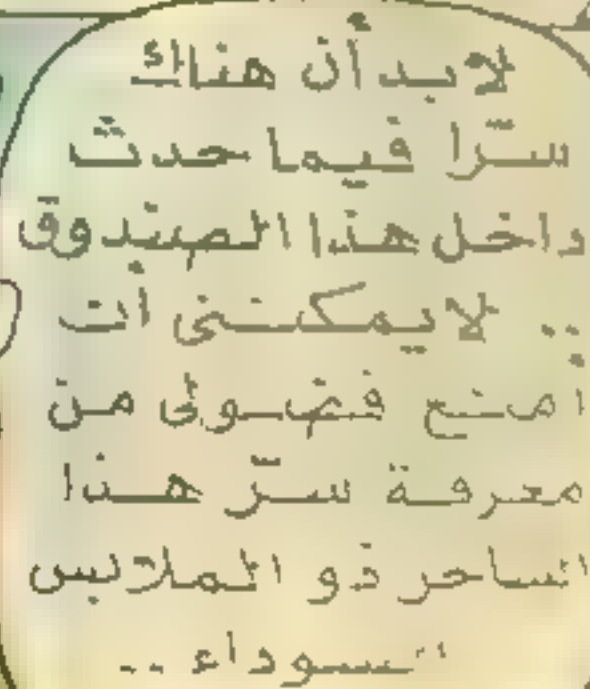 لابد أن هناك
سرّا فيما حدث
داخل هذا الصندوق
.. لا يمكننى أن
امنع فضولى من
معرفة سرّ هذا
الساحر ذو الملابس
السوداء ..